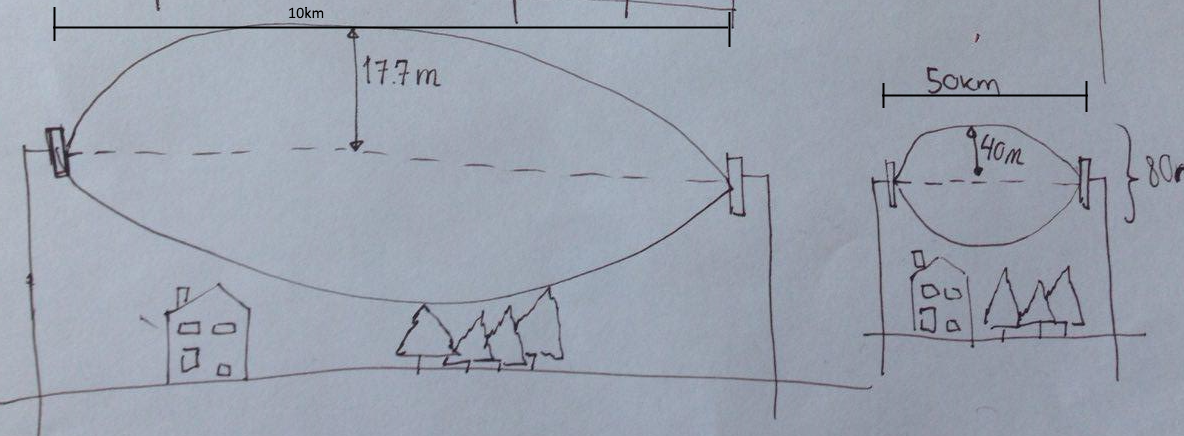 10km
17.7m
50km
40m
80